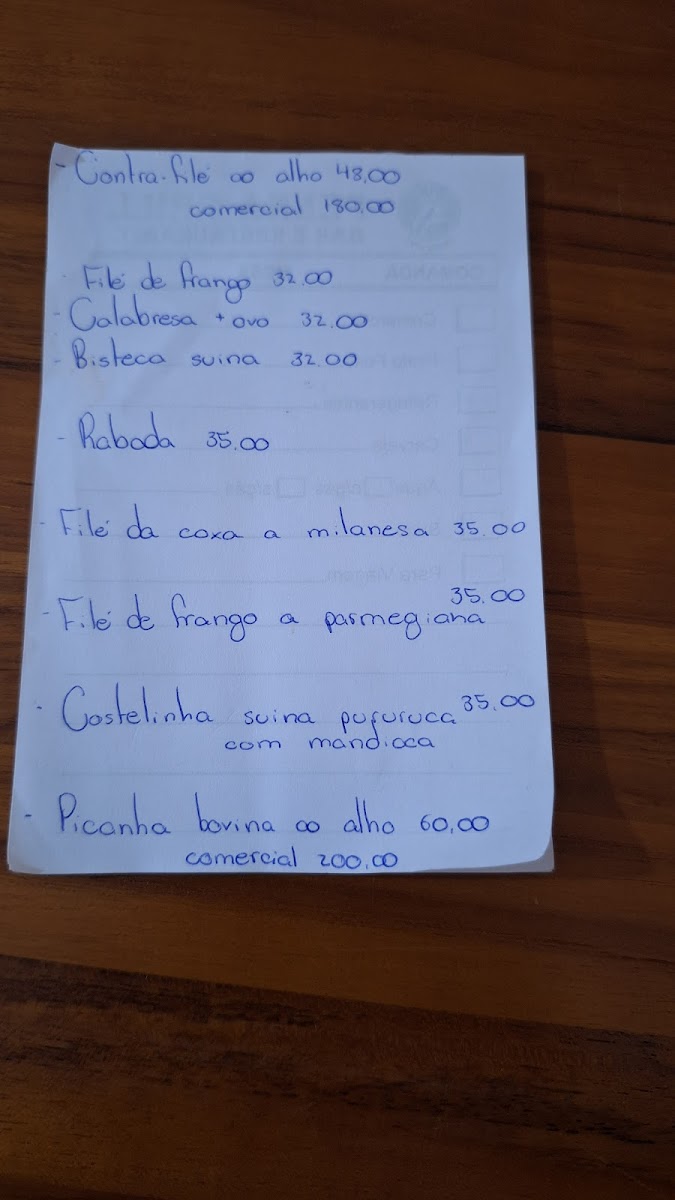 - Contra-filé ao alho 48,00
comercial 180,00
- Filé de frango 32.00
- Calabresa + ovo 32.00
- Bisteca suina 32.00
- Rabada 35.00
- Filé da coxa a milanesa 35.00
35.00
- Filé de frango a parmegiana
- Costelinha suina pururuca 35.00
com mandioca
- Picanha bovina ao alho 60,00
comercial 200,00